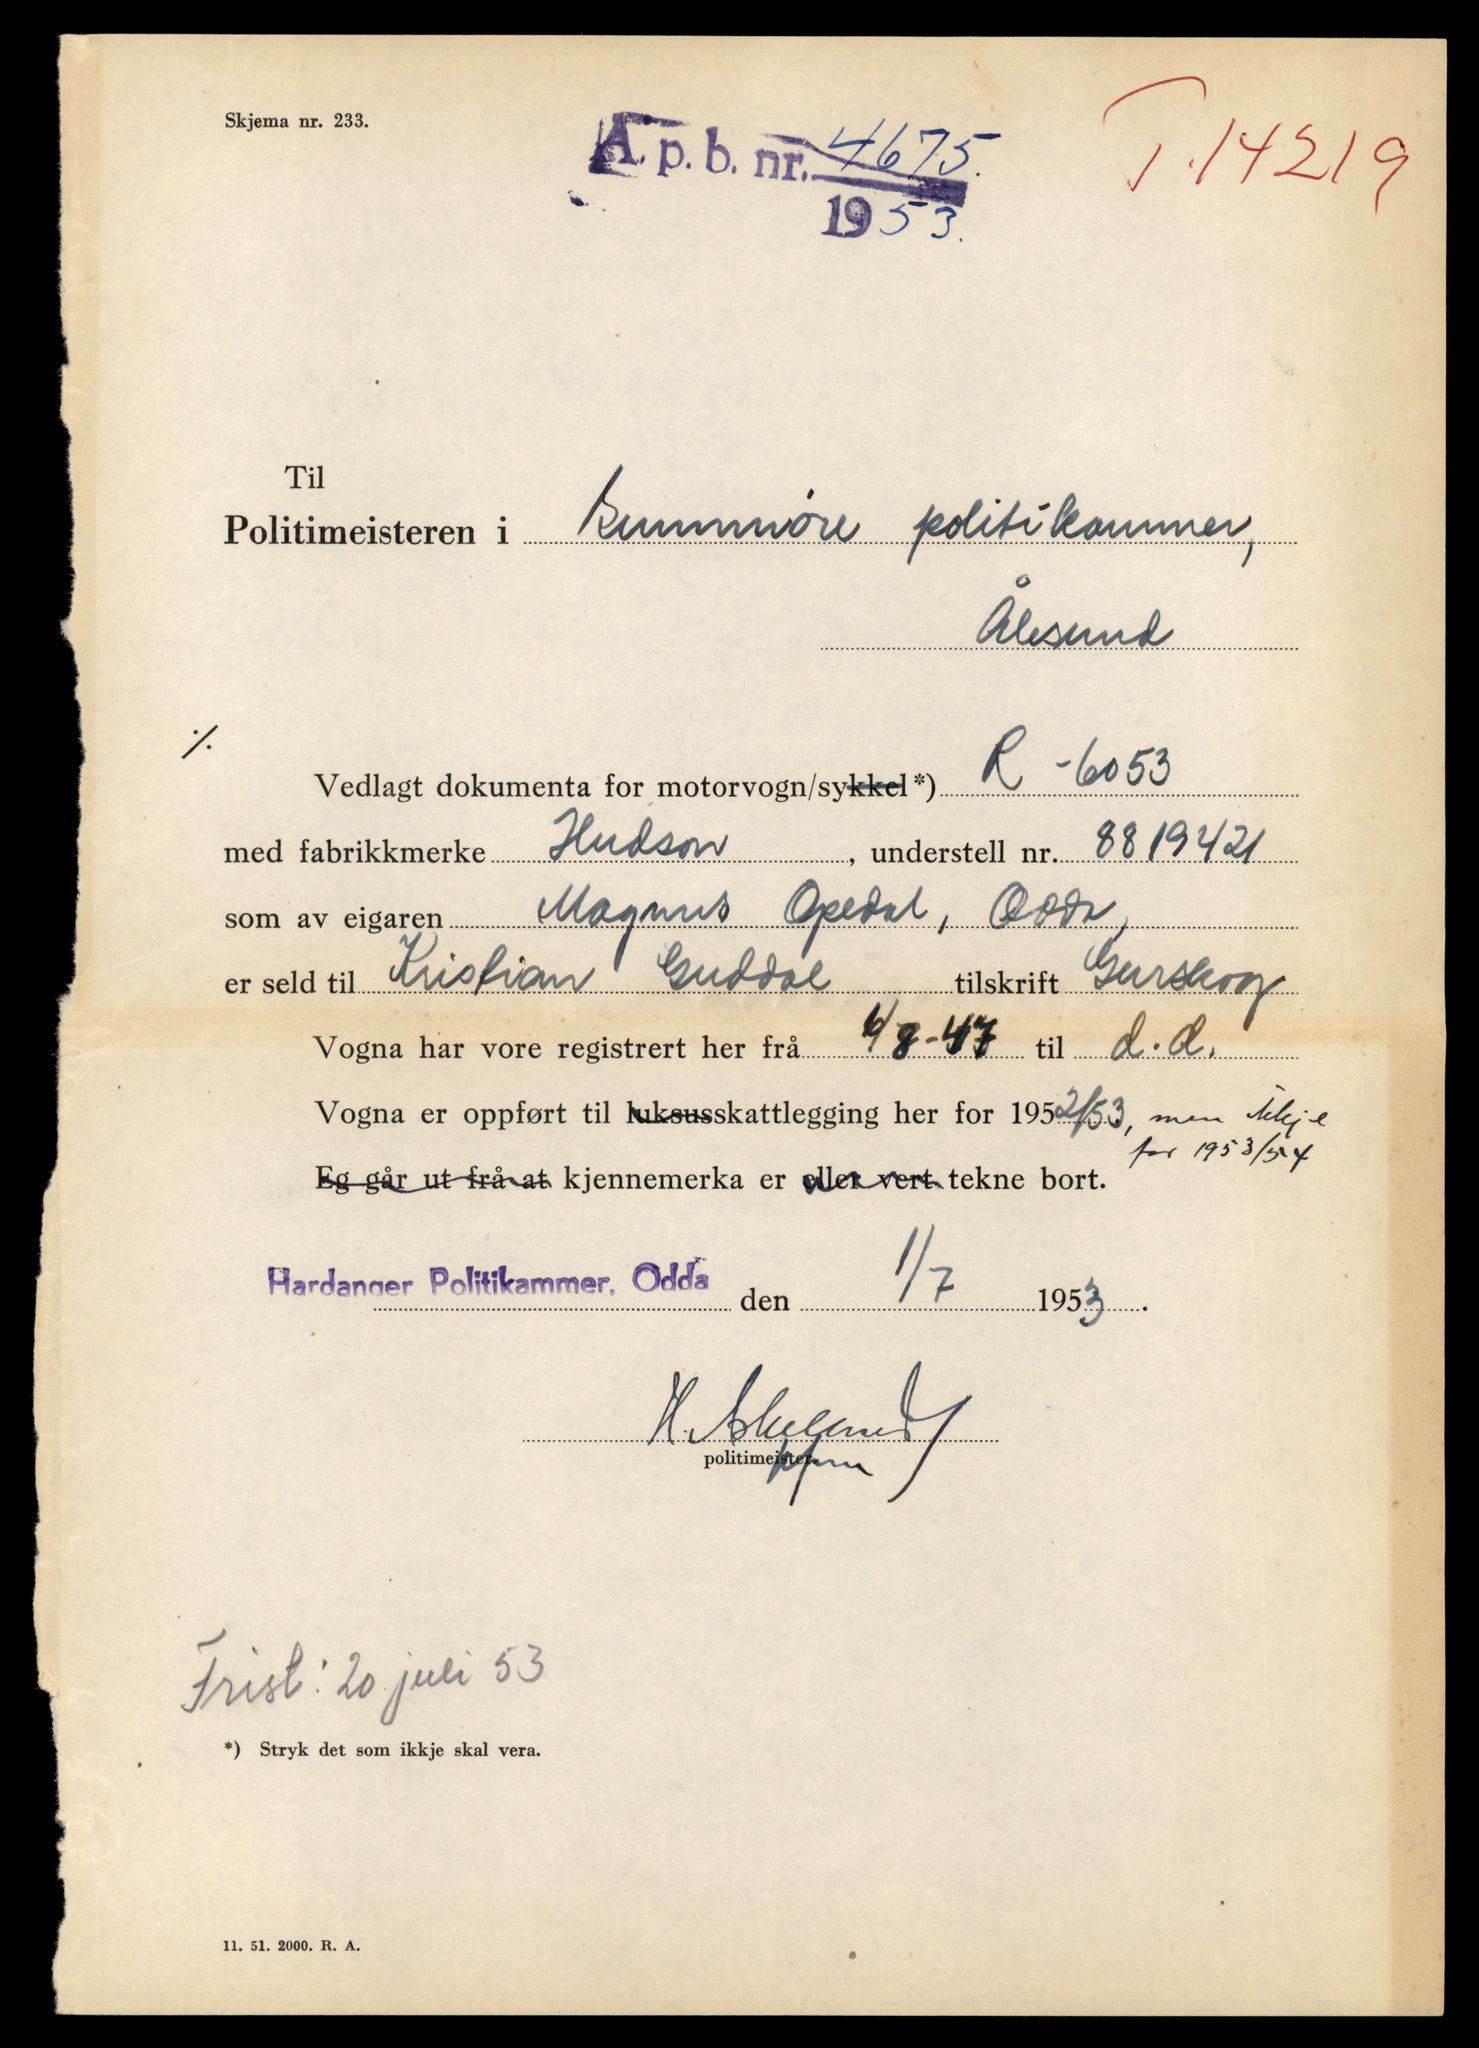 Skjema nr. 233.
A. p. b. nr. 4675.
1953.
T. 14219
Til
Politimeisteren i Sunnmöre politikammer,
Ålesund
./.
Vedlagt dokumenta for motorvogn/sykkel*) R - 6053
med fabrikkmerke Hudson, understell nr. 8819421
som av eigaren Magnus Opedal, Odda,
er seld til Kristian Guddal tilskrift Gurskog
Vogna har vore registrert her frå 6/8-47 til d.d.
Vogna er oppført til luksusskattlegging her for 1952/53, men ikkje
for 1953/54
Eg går ut frå at kjennemerka er eller vert tekne bort.
Hardanger Politikammer, Odda den 1/7 1953.
H.
politimeister
Frist: 20 juli 53
*) Stryk det som ikkje skal vera.
11. 51. 2000. R. A.